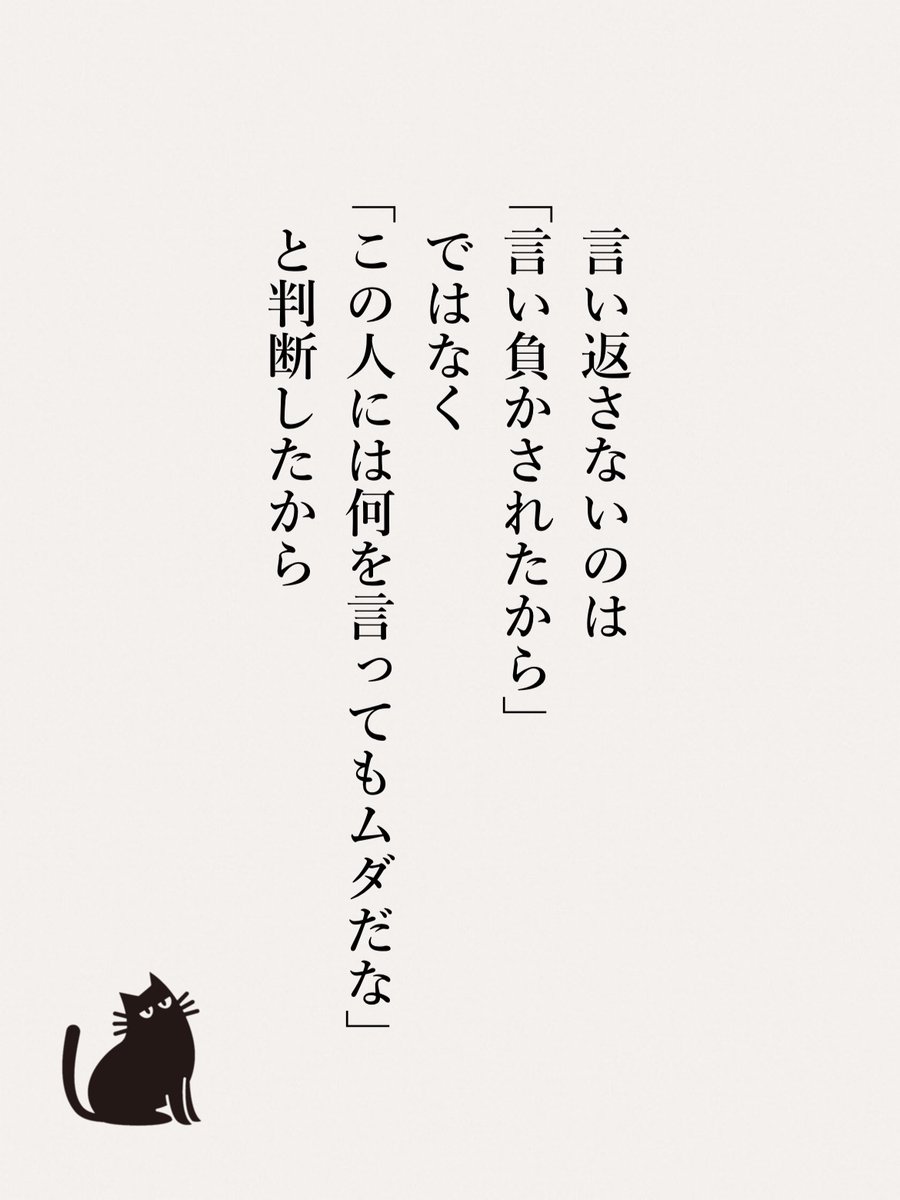 言い返さないのは
「言い負かされたから」
ではなく
「この人には何を言ってもムダだな」
と判断したから